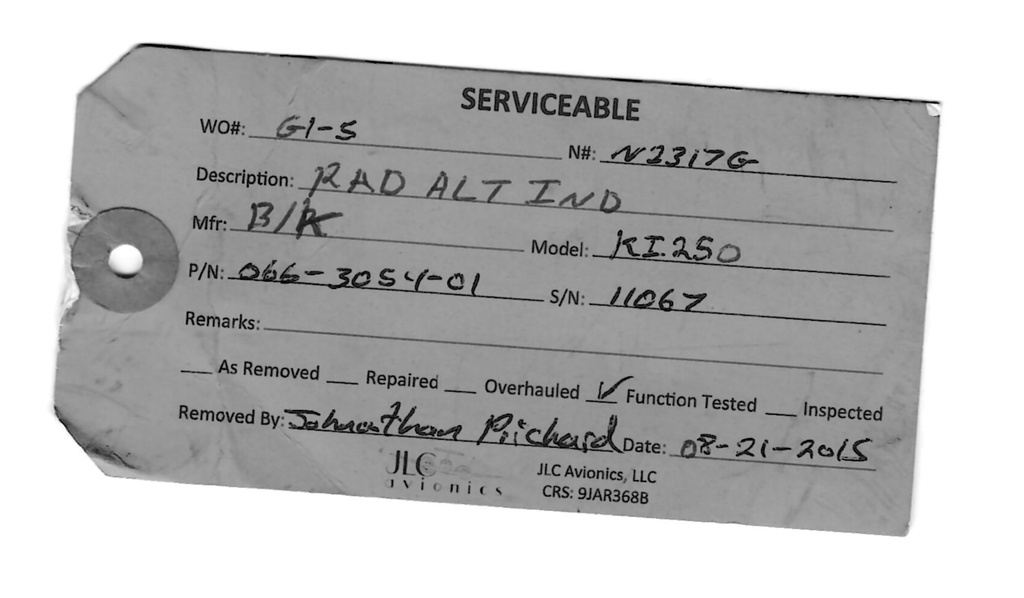 SERVICEABLE
WO#: G1-S N#: N2317G
Description: RAD ALT IND
Mfr: B/K Model: KI.250
P/N: 066-3054-01 S/N: 11067
Remarks:
As Removed Repaired Overhauled ✓ Function Tested Inspected
Removed By: Johnathan Prichard Date: 08-21-2015
JLC avionics JLC Avionics, LLC
CRS: 9JAR368B